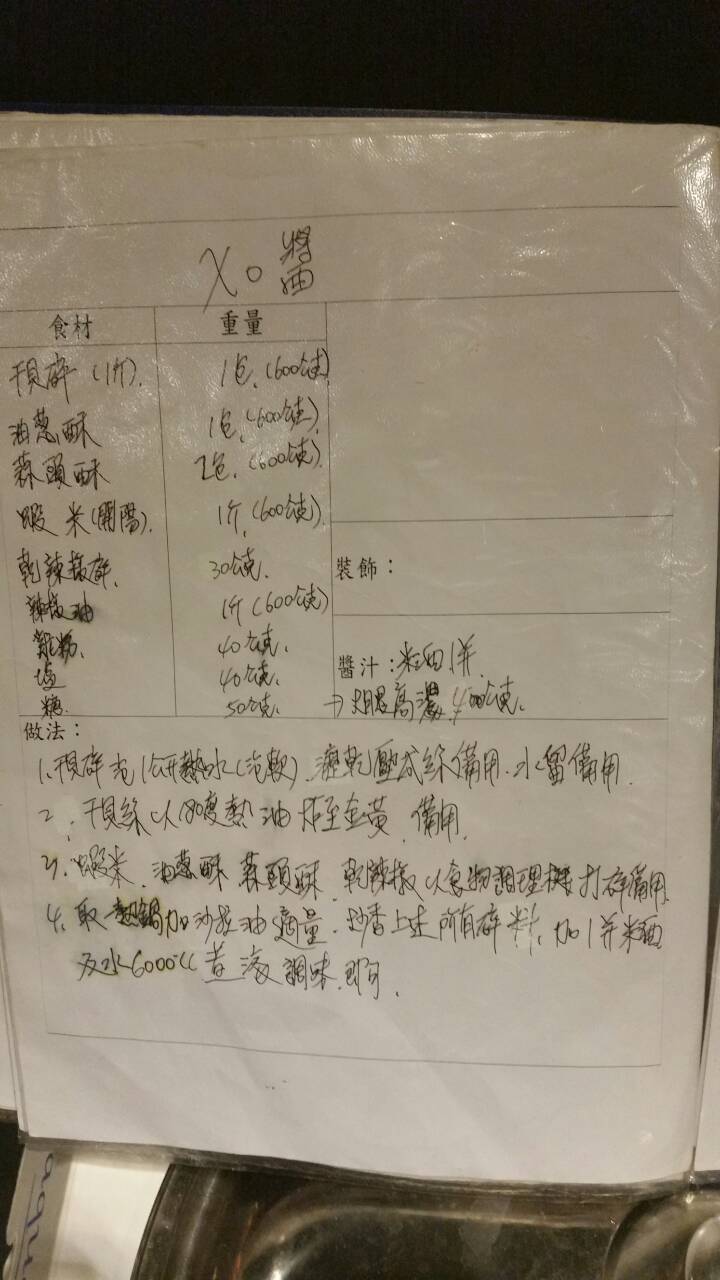 XO醬
食材 重量
干貝碎(1斤). 1包.(600公克)
油蔥酥 1包.(600公克).
蒜頭酥 2包.(600公克).
蝦米(開陽). 1斤.(600公克)
乾辣椒碎. 30公克.
辣椒油 1斤(600公克)
雞粉. 40公克.
塩 40公克.
糖. 50公克.
裝飾：
醬汁：米酒1并.
高湯 400公克.
做法：
1.干貝碎 熱水(泡軟).瀝乾壓成絲備用.水留備用.
2.干貝絲以180度熱油炸至金黃.備用.
3.蝦米.油蔥酥.蒜頭酥.乾辣椒以食物調理機打碎備用
4.取熱鍋加沙拉油適量.炒香上述所有碎料.加1并米酒
及水6000cc煮滾調味.即可.